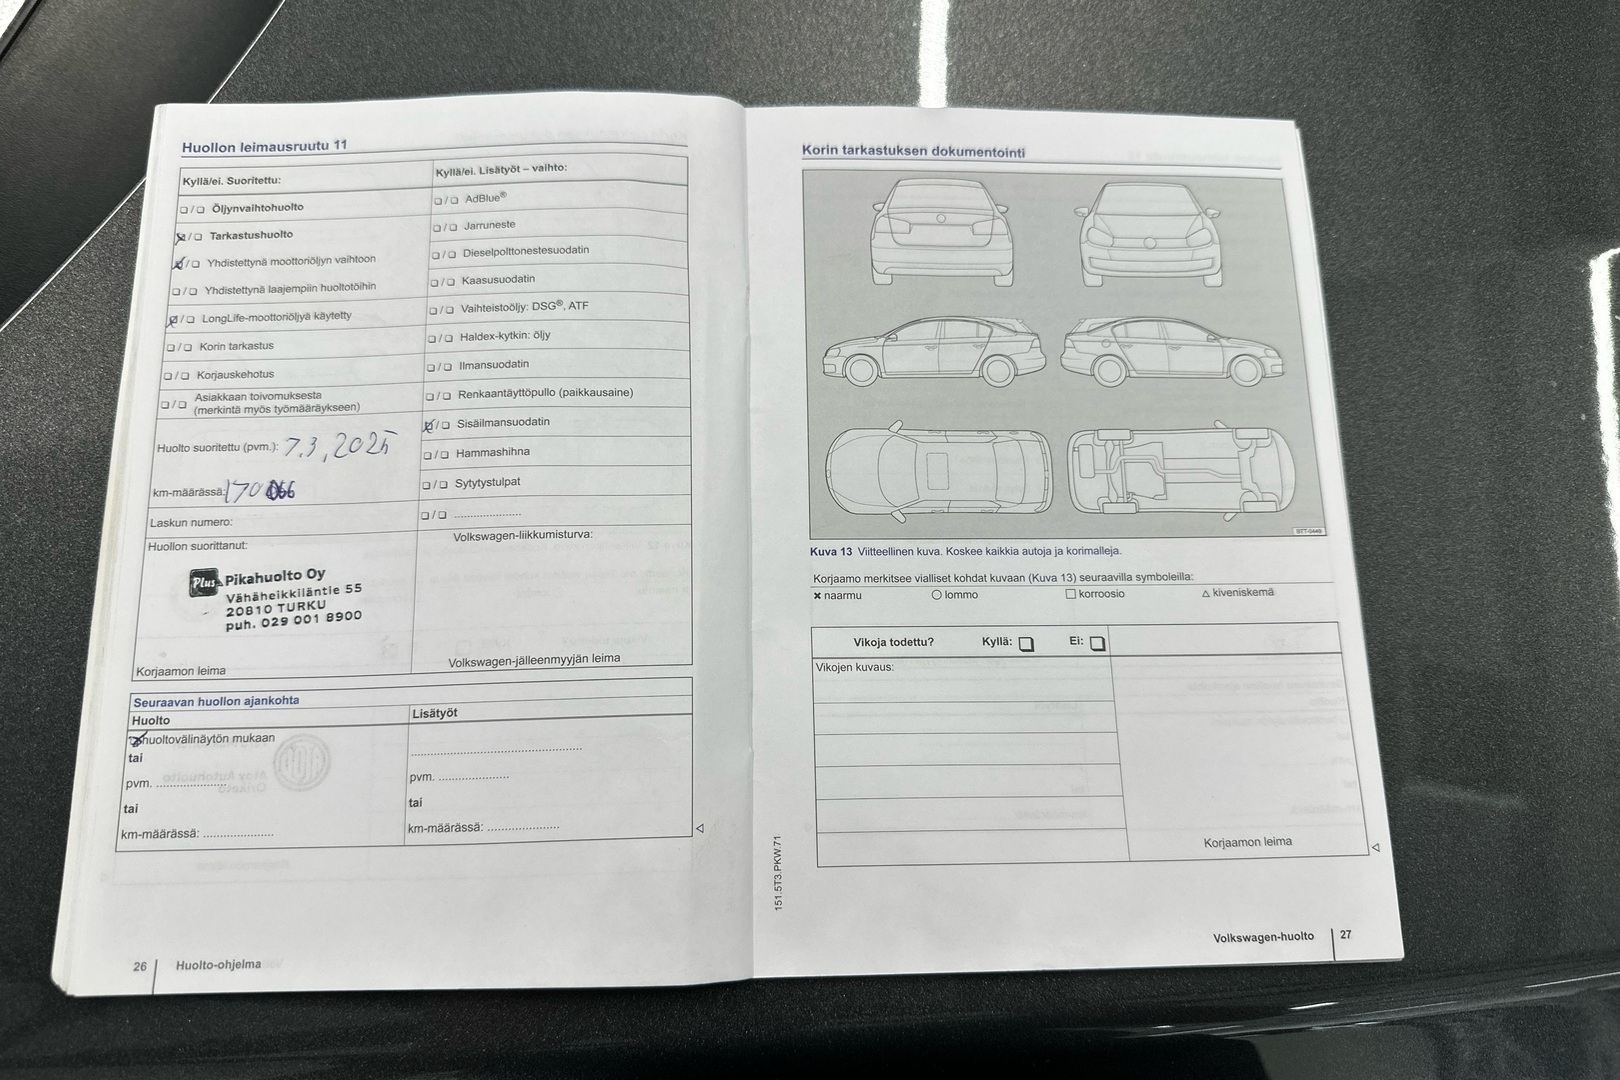 Huollon leimausruutu 11
Kyllä/ei. Suoritettu:
❏/❏ Öljynvaihtohuolto
❏/❏ Tarkastushuolto
❏/❏ Yhdistettynä moottoriöljyn vaihtoon
❏/❏ Yhdistettynä laajempiin huoltotöihin
❏/❏ LongLife-moottoriöljyä käytetty
❏/❏ Korin tarkastus
❏/❏ Korjauskehotus
❏/❏ Asiakkaan toivomuksesta
(merkintä myös työmääräykseen)
Huolto suoritettu (pvm.): 7.3.2025
km-määrässä: 170066
Laskun numero:
Huollon suorittanut:
Plus Pikahuolto Oy
Vähäheikkiläntie 55
20810 TURKU
puh. 029 001 8900
Korjaamon leima
Kyllä/ei. Lisätyöt – vaihto:
❏/❏ AdBlue®
❏/❏ Jarruneste
❏/❏ Dieselpolttonestesuodatin
❏/❏ Kaasusuodatin
❏/❏ Vaihteistoöljy: DSG®, ATF
❏/❏ Haldex-kytkin: öljy
❏/❏ Ilmansuodatin
❏/❏ Renkaantäyttöpullo (paikkausaine)
❏/❏ Sisäilmansuodatin
❏/❏ Hammashihna
❏/❏ Sytytystulpat
❏/❏ ......................
Volkswagen-liikkumisturva:
Volkswagen-jälleenmyyjän leima
Seuraavan huollon ajankohta
Huolto
huoltovälinäytön mukaan
tai
pvm. ......................
tai
km-määrässä: ......................
Lisätyöt
......................
pvm. ......................
tai
km-määrässä: ......................
26 Huolto-ohjelma
Korin tarkastuksen dokumentointi
BTT-0449
Kuva 13 Viitteellinen kuva. Koskee kaikkia autoja ja korimalleja.
Korjaamo merkitsee vialliset kohdat kuvaan (Kuva 13) seuraavilla symboleilla:
× naarmu ○ lommo □ korroosio △ kiveniskemä
Vikoja todettu? Kyllä: ❏ Ei: ❏
Vikojen kuvaus:
Korjaamon leima
151.5T3.PKW.71
Volkswagen-huolto 27